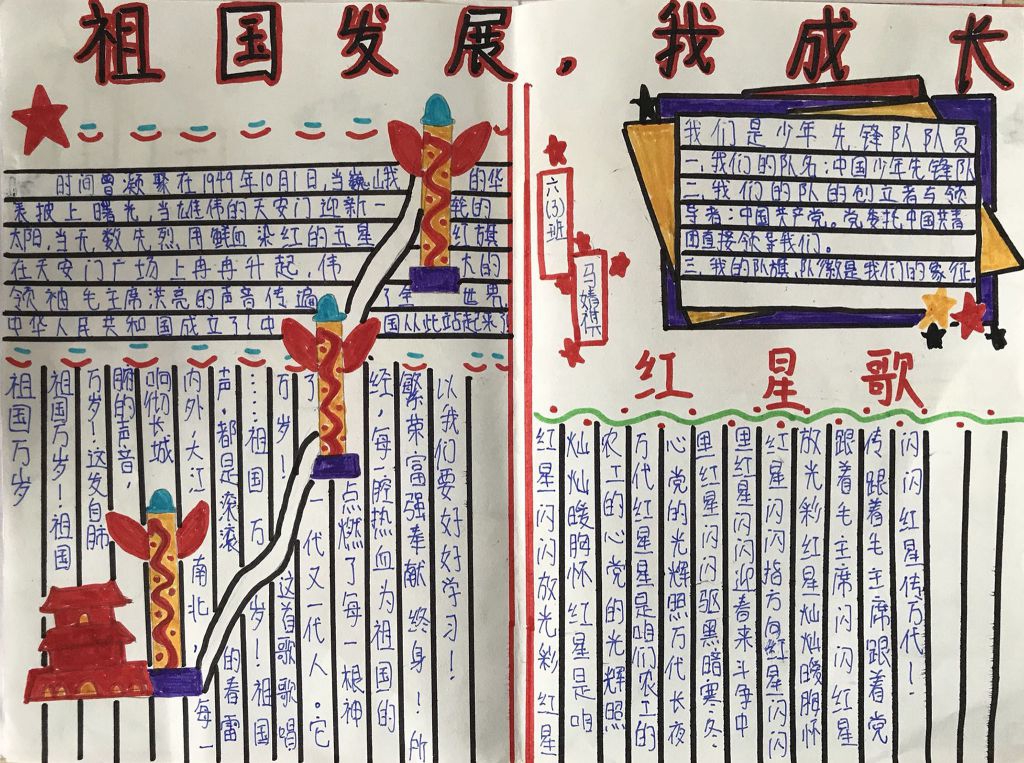 祖国发展,我成长
时间曾凝聚在1949年10月1日,当巍 我的华
表披上曙光,当雄伟的天安门迎新一轮的
太阳,当无数先烈用鲜血染红的五星红旗
在天安门广场上冉冉升起,伟大的
领袖毛主席洪亮的声音传遍了全世界,
中华人民共和国成立了!中国从此站起来了
祖国万岁
祖国万岁!祖国
万岁!这发自肺
腑的声音,
响彻长城
内外,大江南北,每一
声,都是滚滚的春雷
……祖国万岁!祖国
万岁!这首歌歌唱
了一代又一代人。它
点燃了每一根神
经,每一腔热血为祖国的
繁荣富强奉献终身!所
以我们要好好学习!
六(3)班
马婧祺
我们是少年先锋队队员
一.我们的队名:中国少年先锋队
二.我们的队的创立者与领
导者:中国共产党。党委托中国共青
团直接领导我们。
三.我的队旗、队徽是我们的象征
红星歌
红星闪闪放光彩红星
灿灿暖胸怀红星是咱
农工的心党的光辉照
万代红星是咱们农工的
心党的光辉照万代长夜
里红星闪闪驱黑暗寒冬
里红星闪闪迎春来斗争中
红星闪闪指方向红星闪闪
放光彩红星灿灿暖胸怀
跟着毛主席闪闪红星
传跟着毛主席跟着党
闪闪红星传万代!